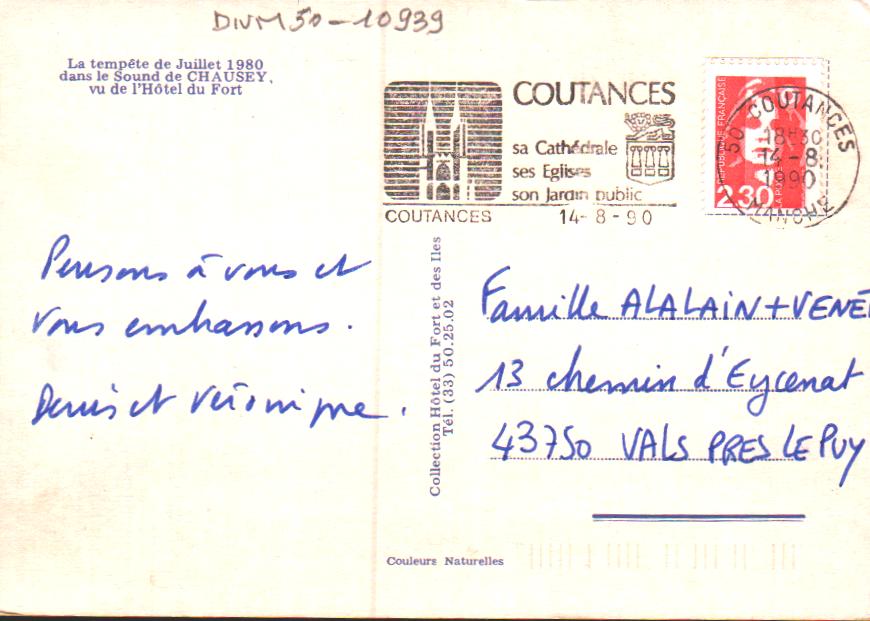 DIVM50-10939
La tempête de Juillet 1980
dans le Sound de CHAUSEY,
vu de l'Hôtel du Fort
COUTANCES
sa Cathédrale
ses Eglises
son Jardin public
COUTANCES 14-8-90
REPUBLIQUE FRANÇAISE
2.30
50 COUTANCES
18H30
14-8.
1990
MANCHE
Pensons à vous et
vous embrassons.
Denis et Véronique.
Collection Hôtel du Fort et des Iles
Tél. (33) 50.25.02
Famille ALALAIN+VENE
13 chemin d'Eycenat
43750 VALS PRES LE PUY
Couleurs Naturelles